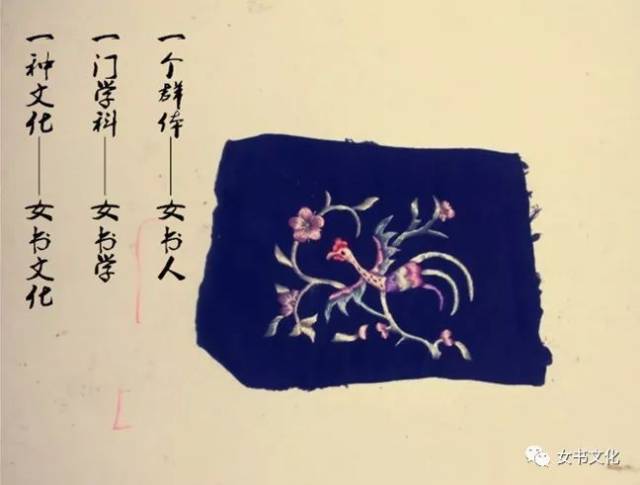 一个群体——女书人
一门学科——女书学
一种文化——女书文化
女书文化